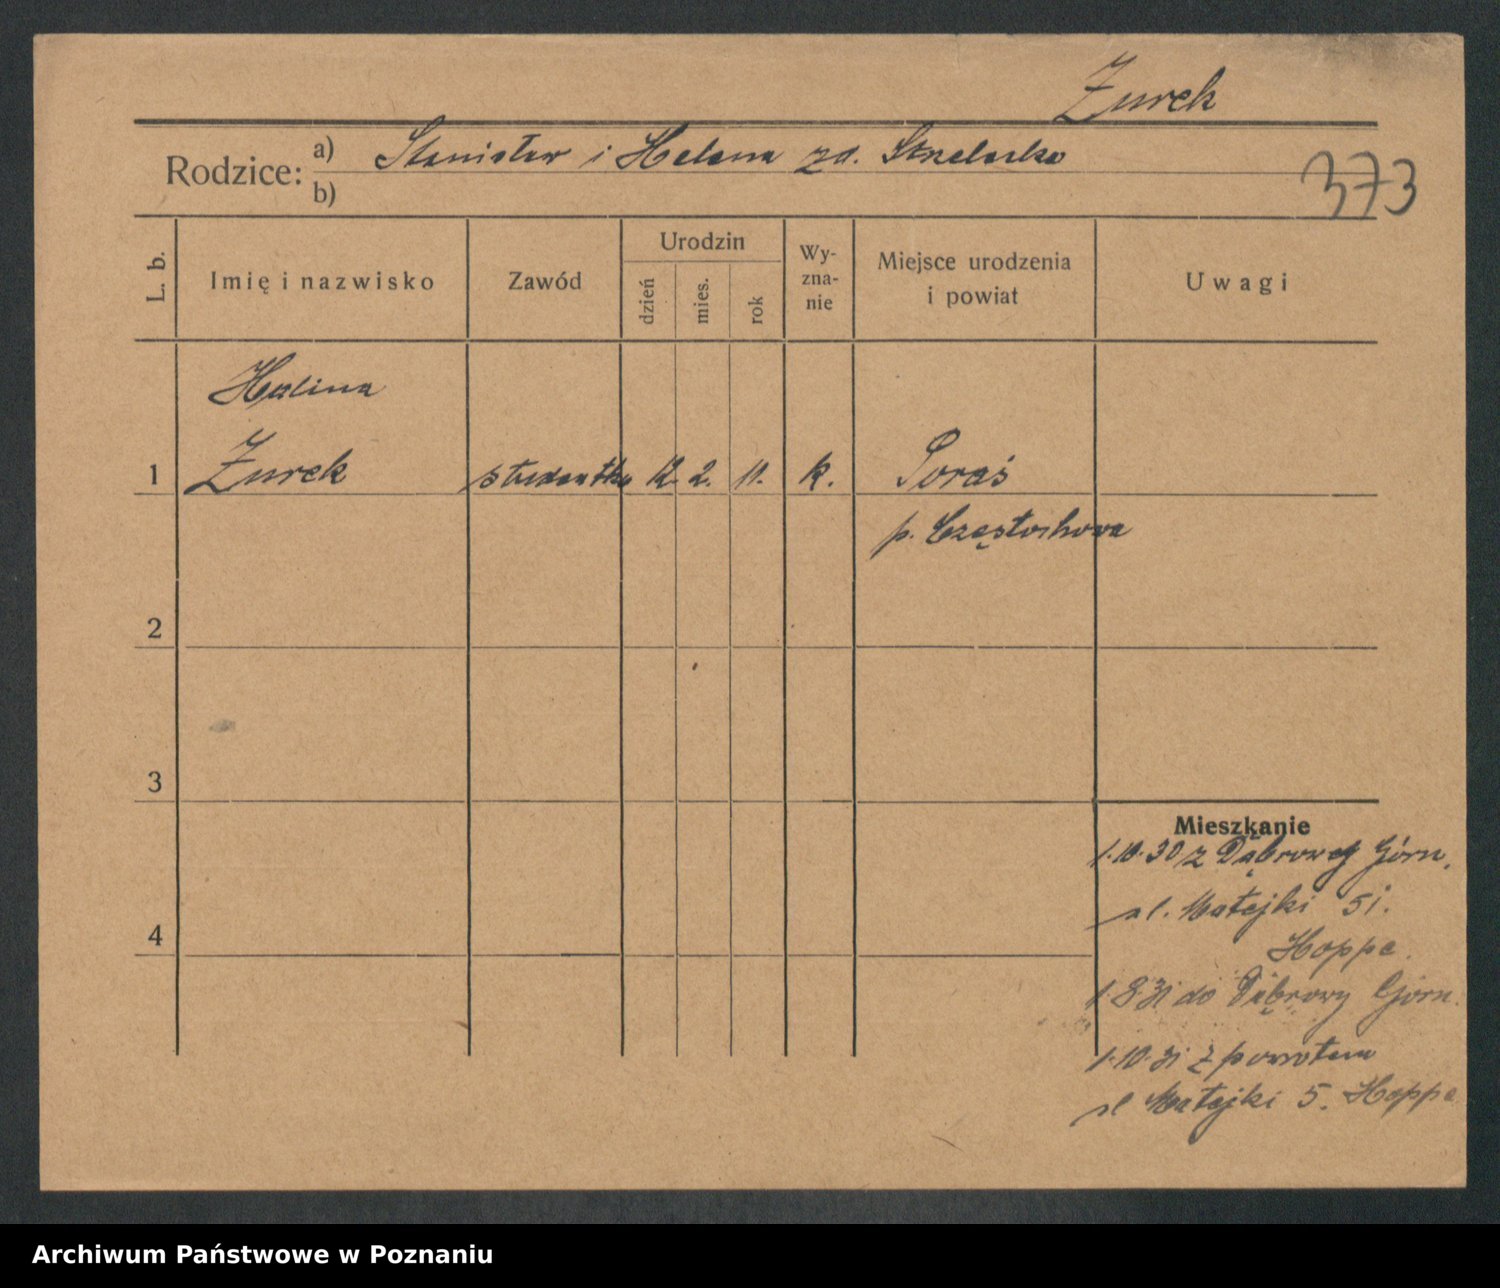 Żurek
Rodzice: a) Stanisław i Helena zd. Strzelecka
b)
373
L. b.
Imię i nazwisko
Zawód
Urodzin
dzień
mies.
rok
Wy-
zna-
nie
Miejsce urodzenia
i powiat
Uwagi
Halina
1 Żurek studentka 12. 2. 11. k. Poraś
p. Częstochowa
2
3
4
Mieszkanie
1.10.30 z Dąbrowej Górn.
ul. Matejki 5i.
Hoppe.
1.8.31 do Dąbrowy Górn.
1.10.31 z powrotem
ul Matejki 5. Hoppe
Archiwum Państwowe w Poznaniu